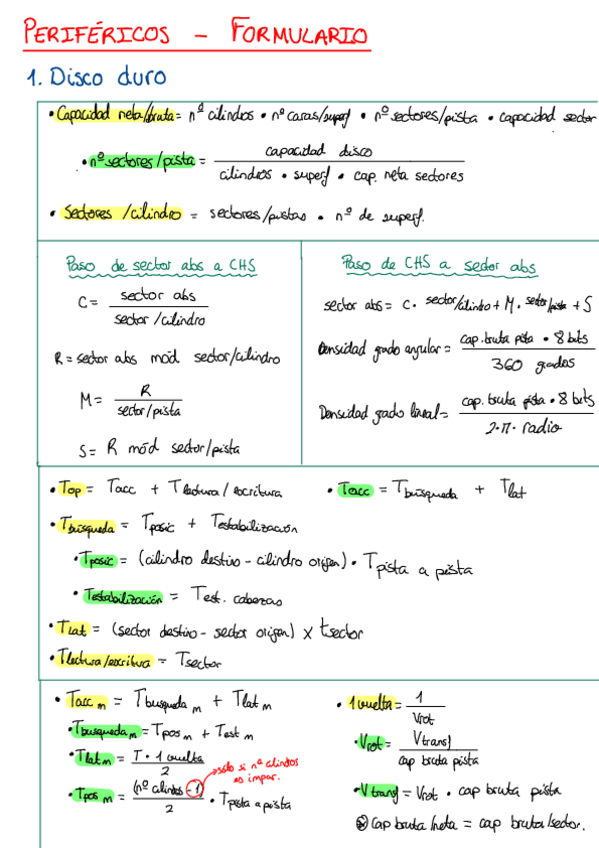 PERIFÉRICOS - FORMULARIO
1. Disco duro
• Capacidad neta/bruta = nº cilindros • nº caras/superf • nº sectores/pista • capacidad sector
• nº sectores/pista = capacidad disco / cilindros • superf • cap. neta sectores
• Sectores/cilindro = sectores/pistas • nº de superf.
Paso de sector abs a CHS
C = sector abs / sector/cilindro
R = sector abs mód sector/cilindro
M = R / sector/pista
S = R mód sector/pista
Paso de CHS a sector abs
sector abs = C • sector/cilindro + M • sector/pista + S
Densidad grado angular = cap. bruta pista • 8 bits / 360 grados
Densidad grado lineal = cap. bruta pista • 8 bits / 2•π• radio
• Top = Tacc + Tlectura/escritura
• Tacc = Tbúsqueda + Tlat
• Tbúsqueda = Tposic + Testabilización
• Tposic = (cilindro destino - cilindro origen) • Tpista a pista
• Testabilización = Test. cabezas
• Tlat = (sector destino - sector origen) x tsector
• Tlectura/escritura = Tsector
• Tacc m = Tbusqueda m + Tlat m
• Tbusqueda m = Tpos m + Test m
• Tlat m = T • 1 vuelta / 2
→ sólo si nº cilindros es impar.
• Tpos m = (nº cilindros - 1) / 2 • Tpista a pista
• 1 vuelta = 1 / Vrot
• Vrot = Vtransf / cap bruta pista
• Vtransf = Vrot • cap bruta pista
Cap bruta/neta = cap bruta/sector.